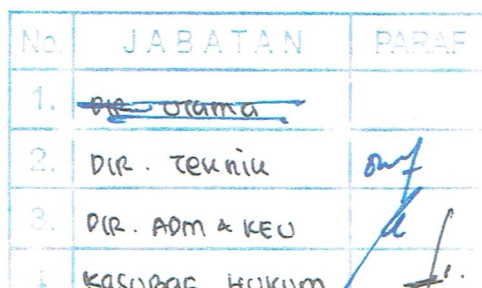 No. JABATAN PARAF
1. DIR. Utama
2. DIR. Teknik
3. DIR. ADM & KEU
4 KASUBAG HUKUM